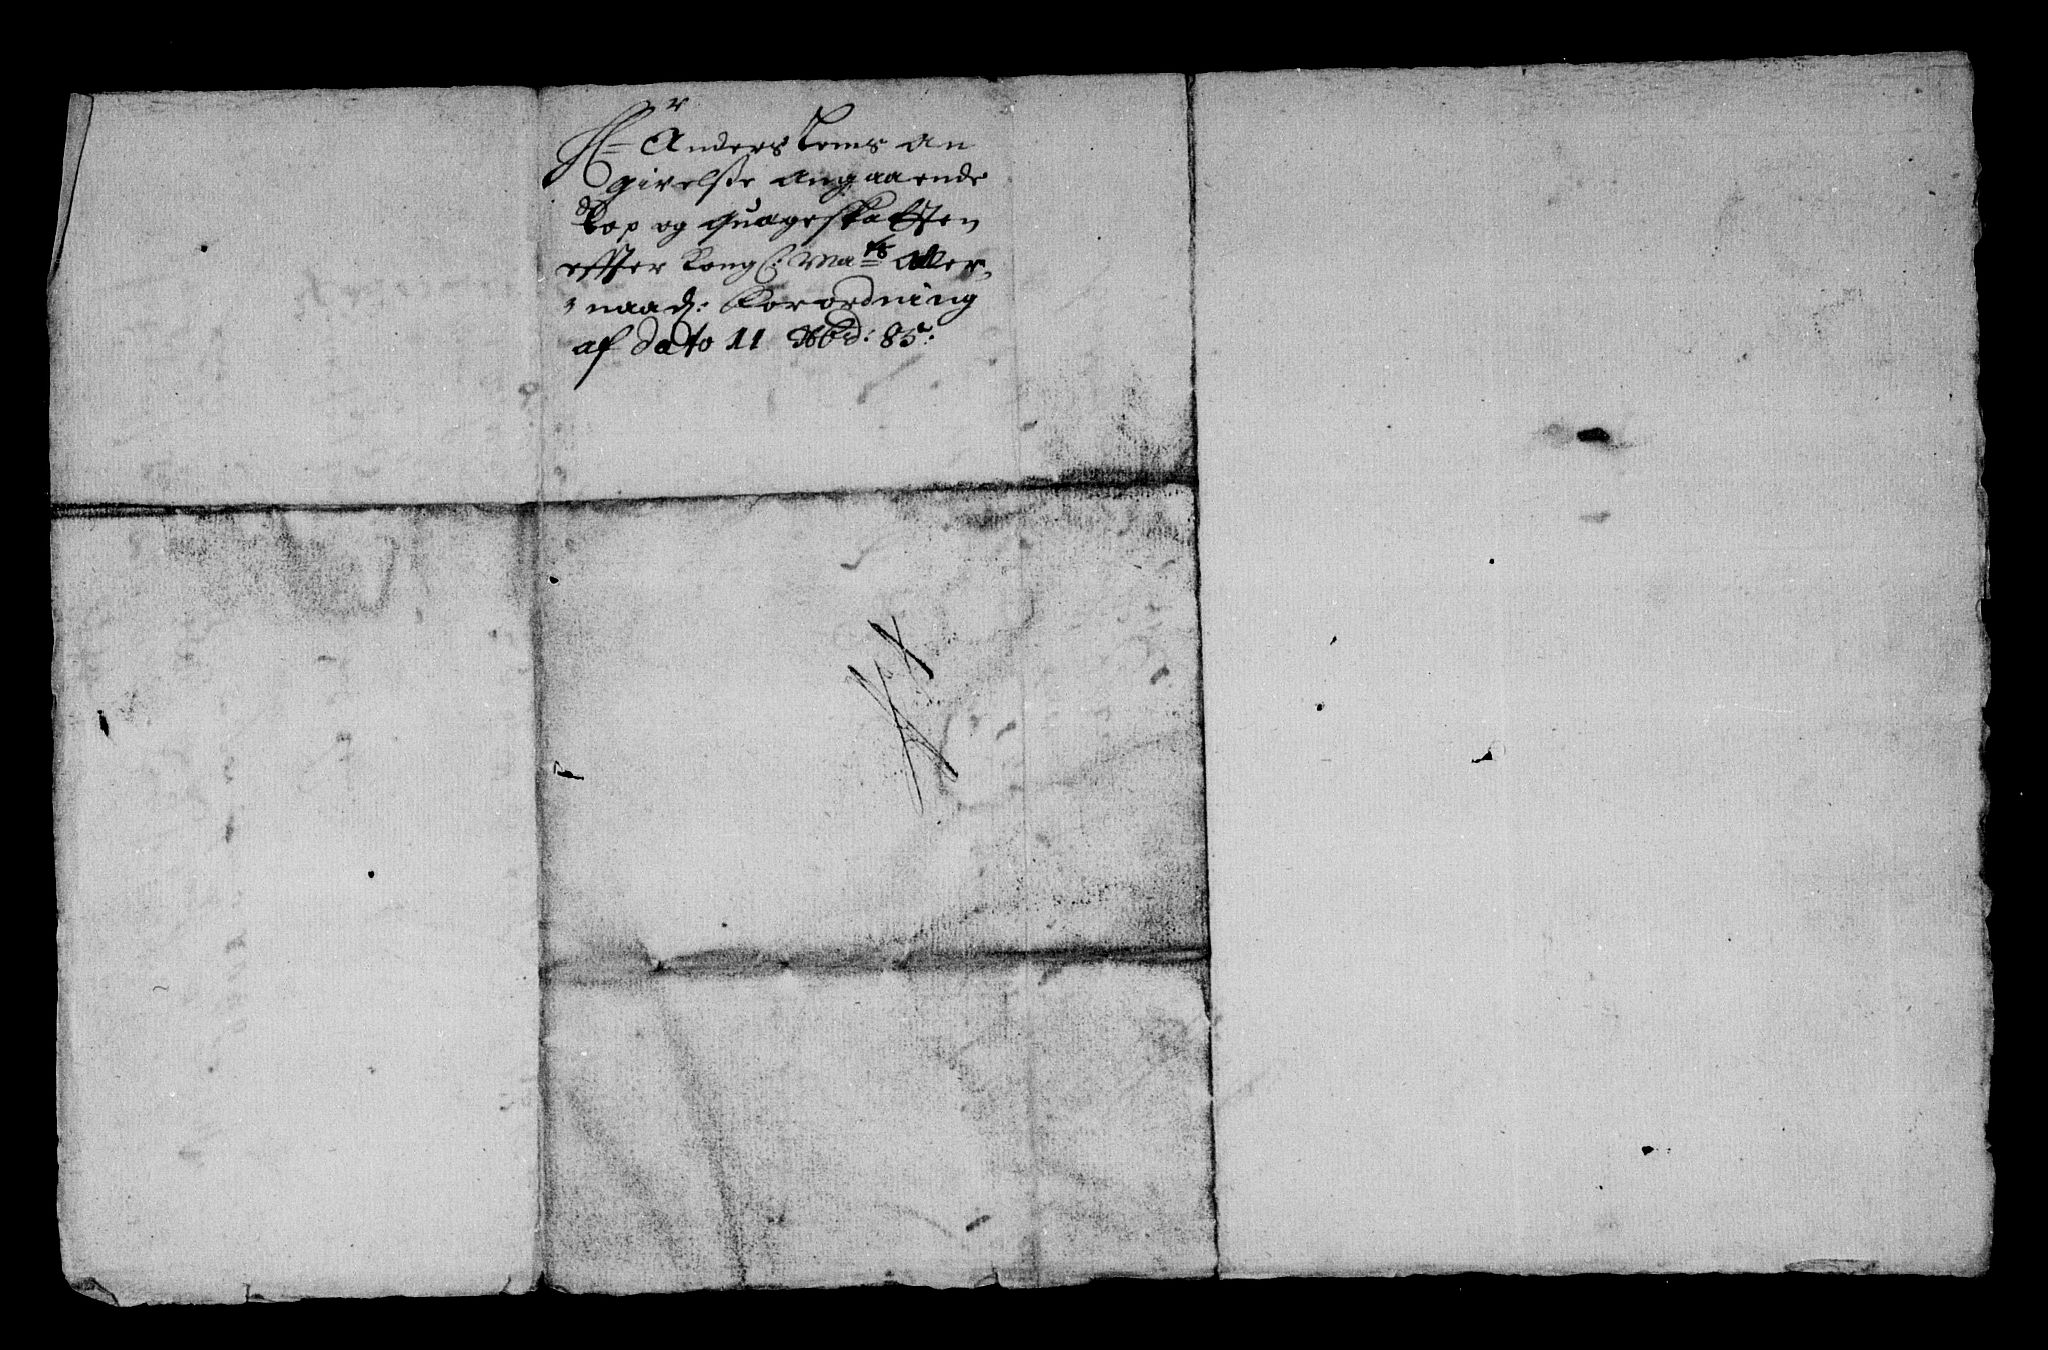 Hr Anders Lems an
givelsse angaaende
Kop og quægeskatten
effter Kongl: Mats Aller,
naad: Forordning
af Dato 11 85: